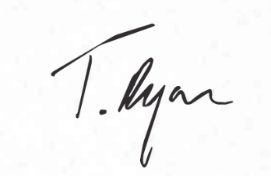 T. Ryan